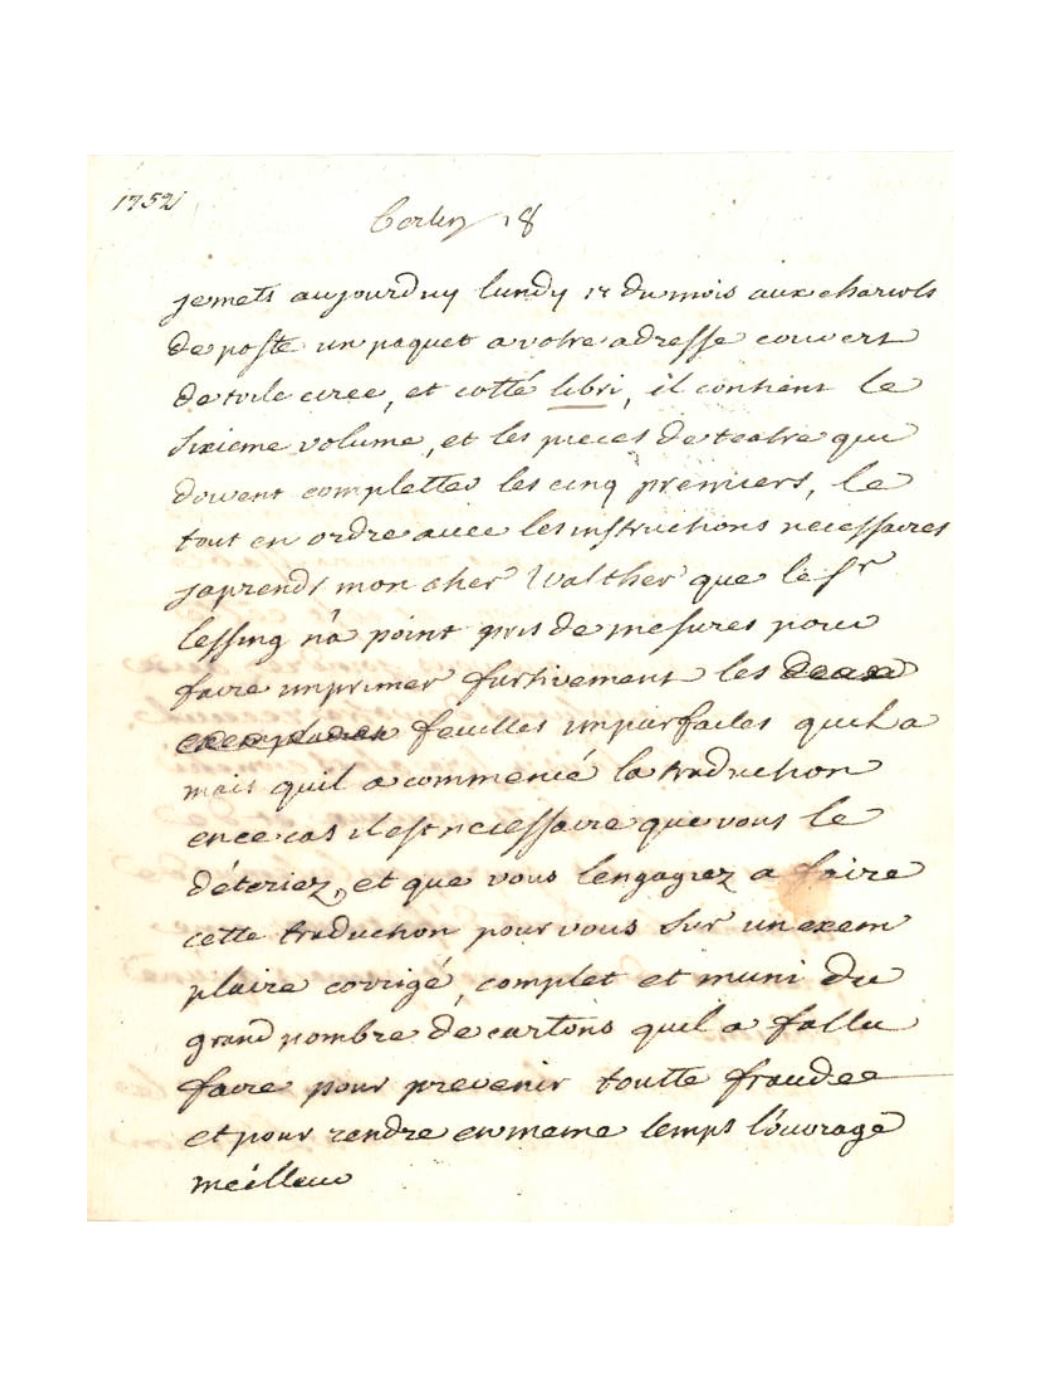 1752
Berlin 18
jemets aujourduy lundy 18 du mois aux chariots
de poste un paquet a votre adresse couvert
de toile ciree, et cotté libri, il contient le
sixieme volume, et les pieces de teatre qui
doivent completter les cinq premiers, le
tout en ordre avec les instructions necessaires
japrends mon cher Walther que le sr
lessing n'a point pris de mesures pour
faire imprimer furtivement les deux
exemplaires feuilles imparfaites quil a
mais quil a commencé la traduction
ence cas il est necessaire que vous le
déteriez, et que vous lengagiez a faire
cette traduction pour vous sur un exem
plaire corrigé, complet et muni du
grand nombre de cartons quil a fallu
faire pour prevenir toutte fraudee
et pour rendre enmeme temps l'ouvrage
méilleur